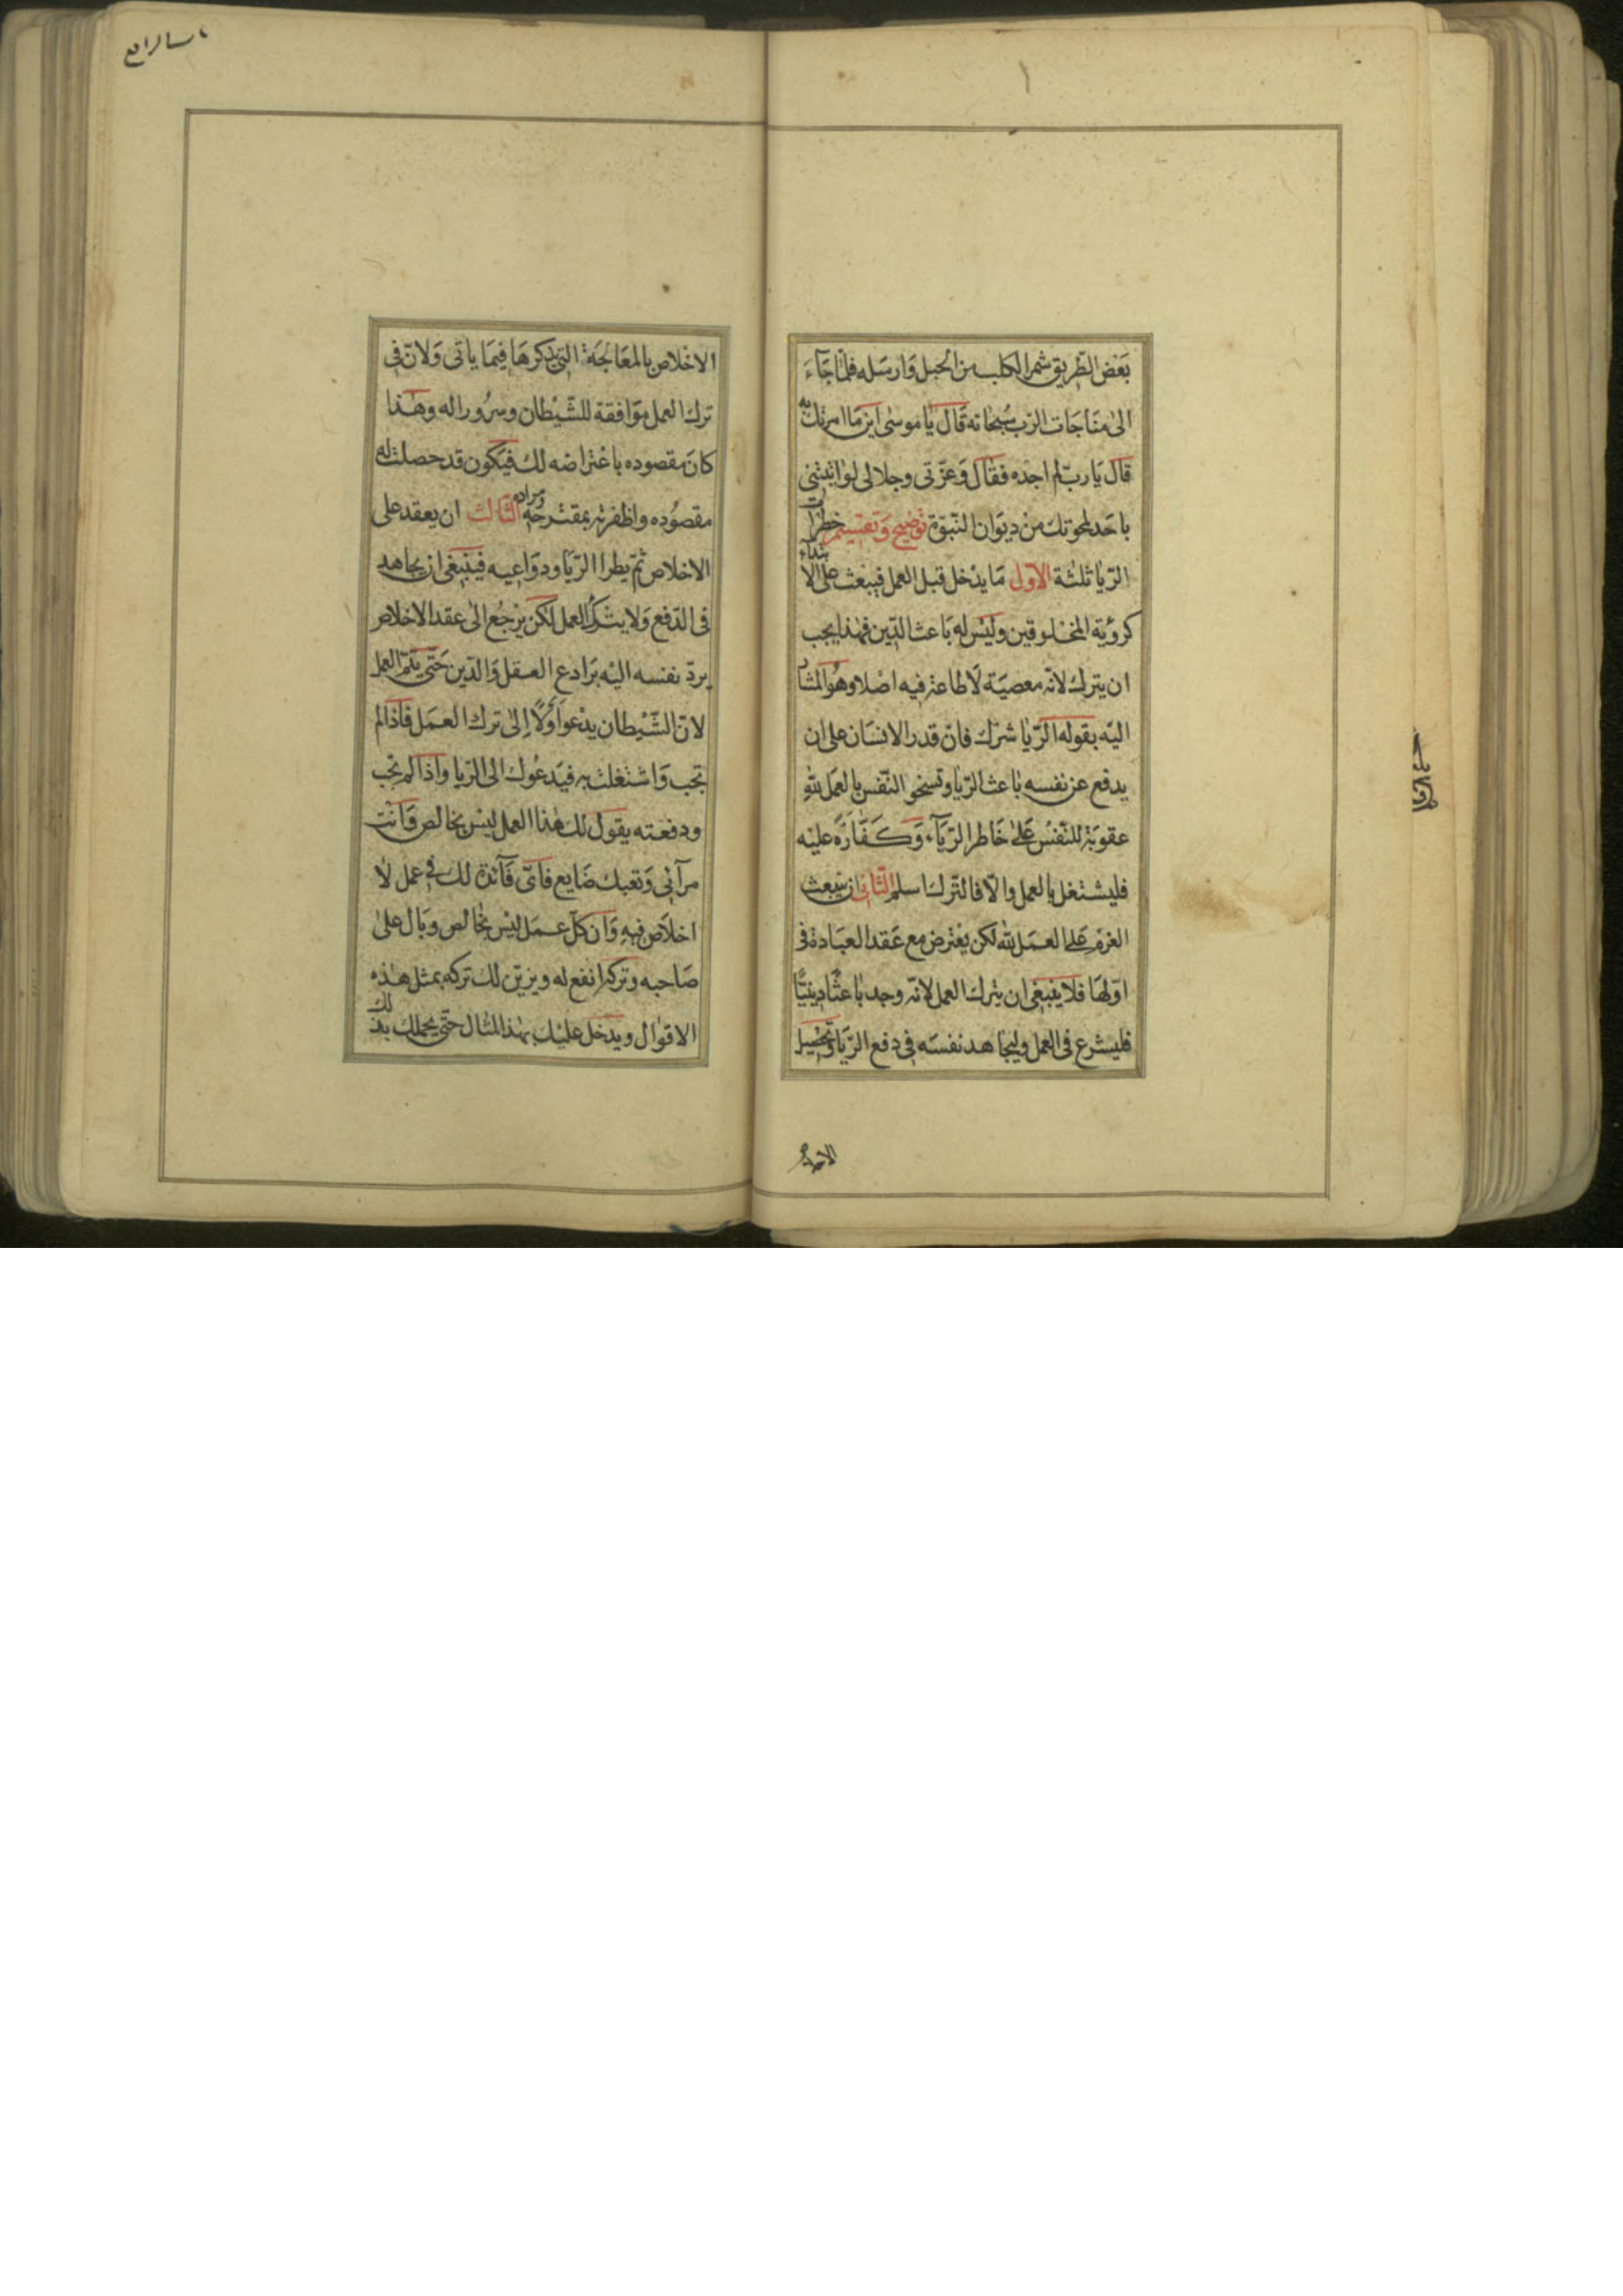 بَعْض الطّريق شمر الكلب من الحبل وَارسَله فلمّا جَاءَ
الىٰ مناجَات الرّب سُبحانه قَال يَا موسى اين مَا امرتك به
قال يَا ربّ لم اجده فقال وَعزّتى وجلالى لو اتيتنى
باحَد لمحوتك من ديوَان النّبوّة توضيح وَتقسيم خطرات
الرّيا ثلثة الاول مَا يدْخل قبل العمل فيبعث على الابتداء
كرؤية المخلوقين وليْس له بَاعث الدّين فهٰذا يجب
ان يترك لانّه معصيَة لَا طاعة فيه اصْلا وهُو المشار
اليْه بقوله الرّيا شرْك فانّ قدر الانسَان على ان
يدفع عن نفسه بَاعث الرّيا وتسخو النّفس بالعمَل لله
عقوبَة للنّفسْ عَلى خَاطر الرّيَاء وَكَفّارَة عليْه
فليشتغل بالعمل والّا فالتّرك اسلم الثّانى ان ينبعث
العزم عَلى العمَل لله لكن يعْترض مع عَقد العبَادة فى
اوّلها فلا ينبغى ان يترك العمل لانّه وجد بَاعثًا دينيًّا
فليشرع فى العمل وليجَاهد نفسَه فى دفع الرّيَا وَتحْصيل
الاخلاص
باب الرابع
الاخْلاص بالمعَالجَة التى نذكرهَا فيمَا ياتى وَلانّ فى
ترك العمل موَافقة للشّيْطان وسرُورا له وهٰذا
كانَ مقصوده باعْتراضه لك فيَكون قد حصلت له
مقصُوده واظفرته بمقترحه ومراده الثّالث ان يعقد على
الاخلاص ثمّ يطرا الرّيَا ودوَاعيه فيَنبغى ان يجاهد
فى الدّفع وَلا يترك العمل لكن يرْجُع الىٰ عقد الاخلاص
يردّ نفسه اليْه برَادع العقل وَالدّين حَتّى يتمّ العمل
لانّ الشّيْطان يدْعوا اوّلًا إلىٰ ترك العمَل فاذا لم
تجب وَاشتغلت به فيَدعُوك الى الرّيا وَاذا لم تجب
ودفعته يقول لك هٰذا العمل ليْس بخالص وَانْت
مرآئى وَتعبك ضَايع فاىّ فَآئدة لك فى عمل لَا
اخلَاص فيه وَان كلّ عمَل ليْس بخَالص وبَال على
صَاحبه وتركه انفع له ويزيّن لك تركه بمثل هٰذه
الاقوٰال ويدخل عليْك بهٰذا المثال حتّى يحملك بذلك